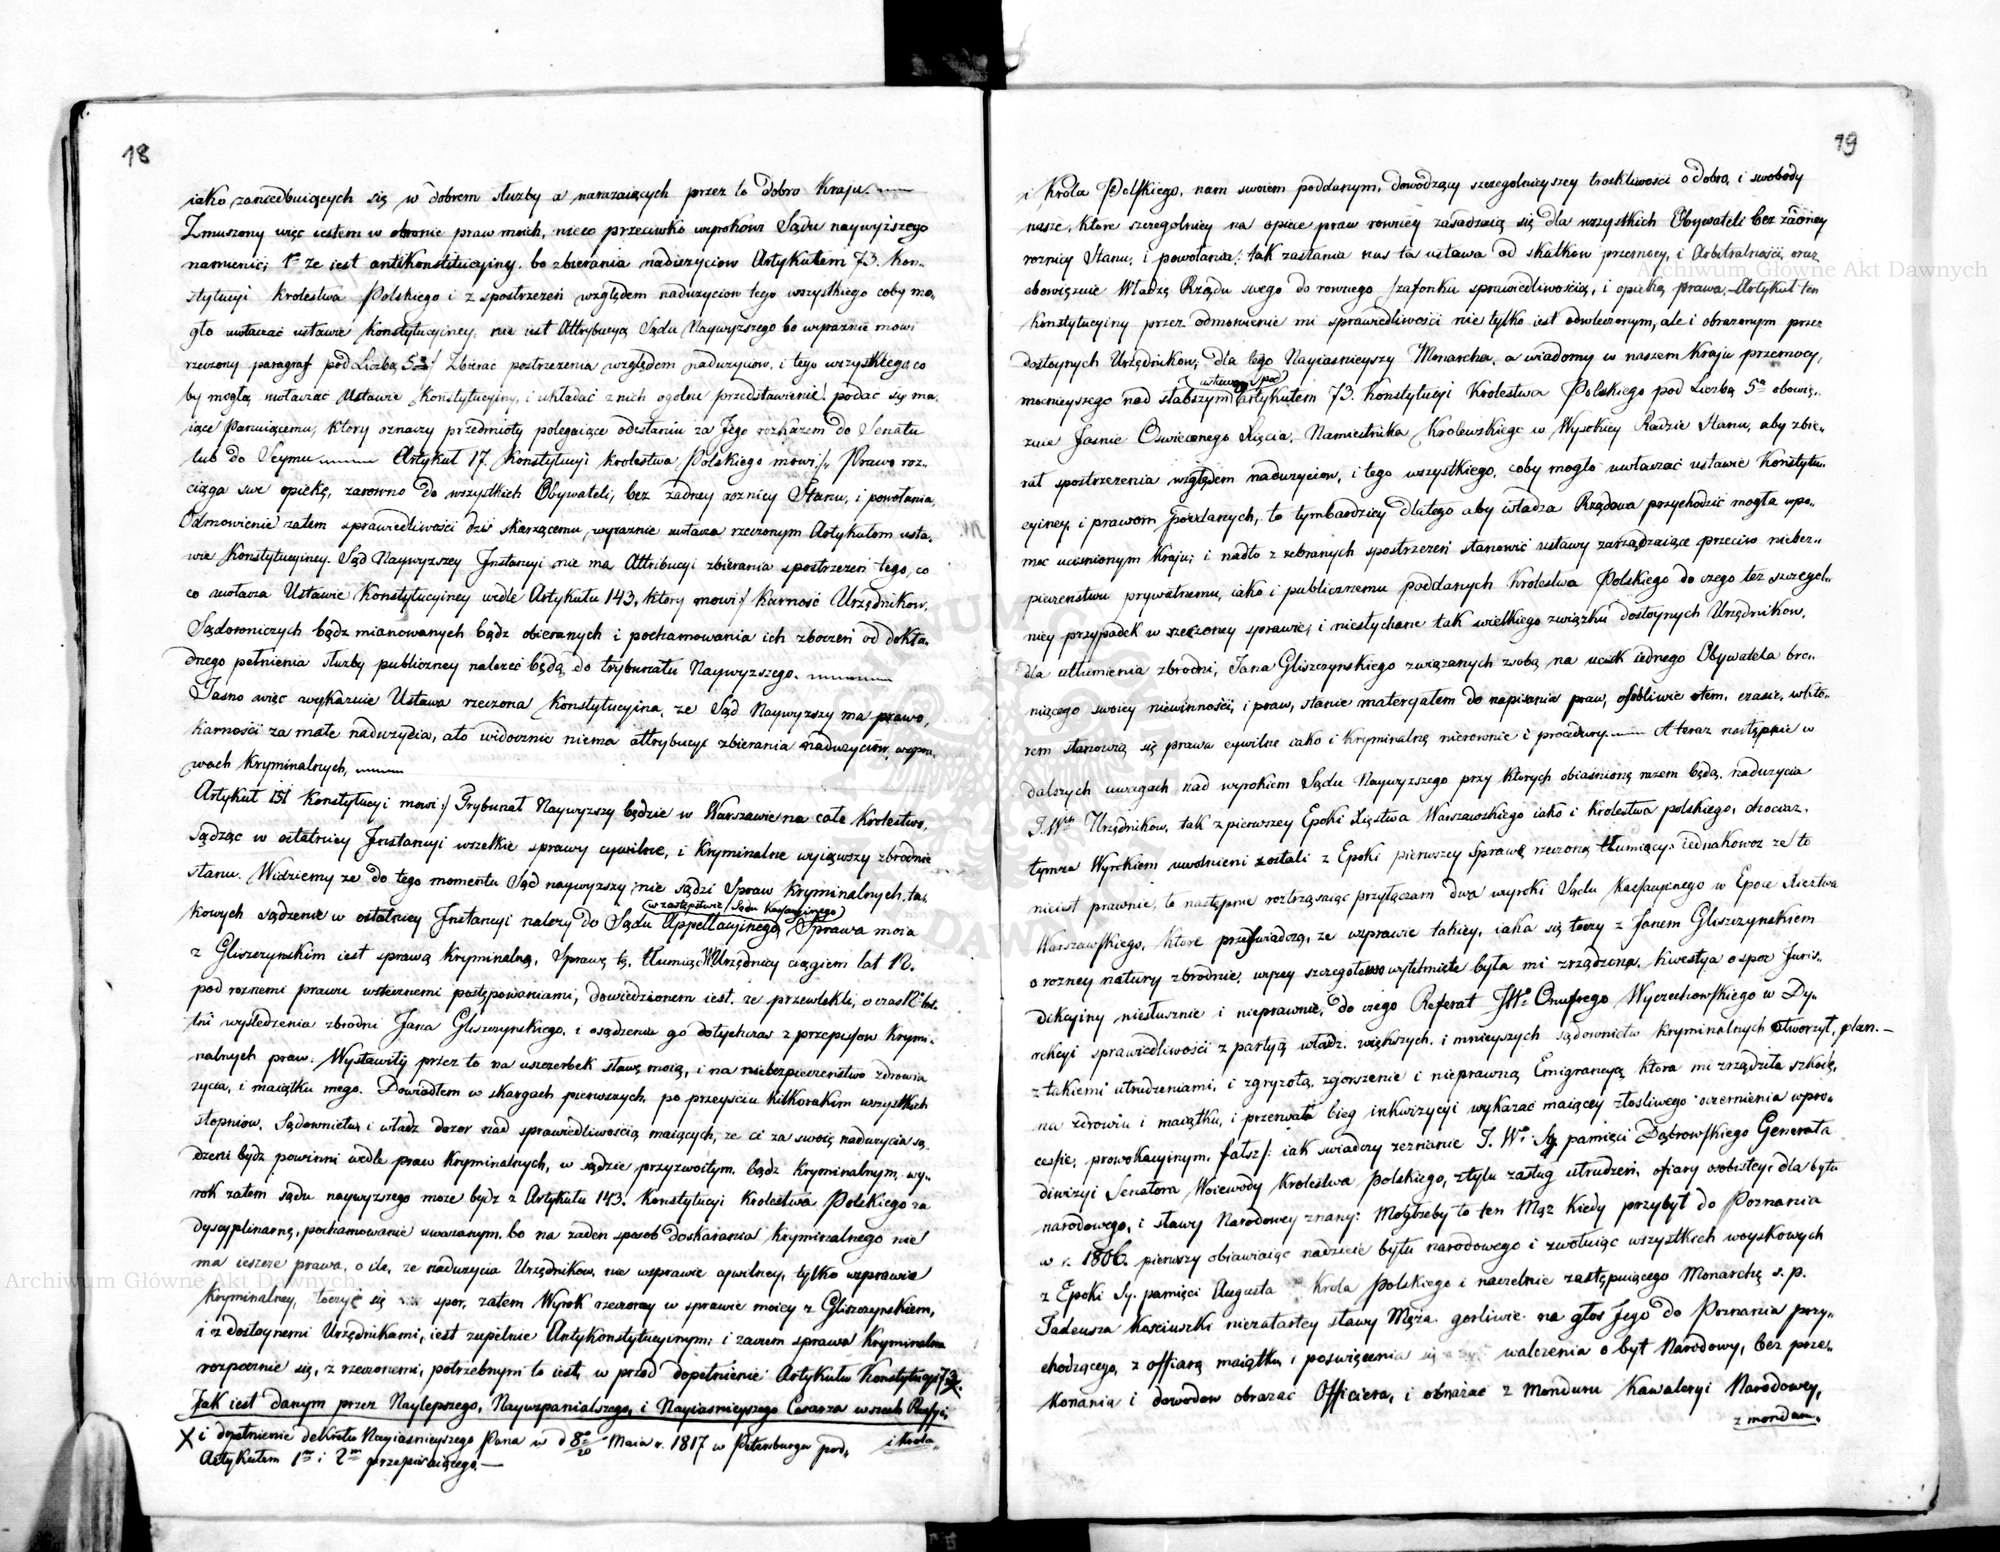 18
iako zaniedbuiących się w dobrem służby a narażaiących przez to dobro Kraju.
Zmuszony więc iestem w obronie praw moich, nieco przeciwko wyrokowi Sądu naywyższego
namienić; 1º że iest antikonstitucyiny, bo zbierania nadużyciow Artykułem 73. Kon-
stytucyi Krolestwa Polskiego i z spostrzeżeń względem nadużyciow tego wszystkiego coby mo-
gło uwłaczać ustawie Konstytucyiney, nie iest Attrybucyą Sądu Naywyższego bo wyraźnie mowi
rzeczony paragraf pod Liczbą 5ą/ Zbierać postrzeżenia względem nadużyciow, i tego wszystkiego co
by mogło uwłaczać Ustawie Konstytucyiny, i układać z nich ogolne przedstawienie! podać się ma-
iące Panuiącemu, ktory oznaczy przedmioty polegaiące odesłaniu za Jego rozkazem do Senatu
lub do Seymu Artykuł 17. Konstytucyi Krolestwa Polskiego mowi:/. Prawo roz-
ciąga swe opiekę, zarowno do wszystkich Obywateli, bez żadney rożnicy Stanu, i powołania,
Odmowienie zatem sprawiedliwości dziś skarżącemu, wyraźnie uwłacza rzeczonym Artykułom usta-
wie Konstytucyiney. Sąd Naywyższey Instancyi nie ma Attribucyi zbierania spostrzeżeń tego, co
co uwłacza Ustawie Konstytucyiney wedle Artykułu 143, ktory mowi:/ Karność Urzędnikow,
Sądowniczych bądz mianowanych bądz obieranych i pochamowania ich zboczeń od dokła-
dnego pełnienia służby publiczney należeć będą do trybunału Naywyższego.
Jasno więc wykazuie Ustawa rzeczona Konstytucyina, ze Sąd Naywyższy ma prawo,
karności za małe nadużycia, ato widocznie niema attrybucyi zbierania nadużyciów, w spra-
wach kryminalnych,
Artykuł 151 Konstytucyi mowi:/ Trybunał Naywyższy będzie w Warszawie na całe Krolestwo,
sądząc w ostatniey Instancyi wszelkie sprawy cywilne, i kryminalne wyiąwszy zbrodnie
stanu. Widziemy ze do tego momentu Sąd naywyższy, nie sądzi Spraw kryminalnych, ta-
(w zastępstwie/ Sądu Kassacyinego)
kowych sądzenie w ostatniey Instancyi należy do Sądu Appellacyinego, Sprawa moia
z Gliszczynskim iest sprawą kryminalną, Sprawę tę, tłumiąc WUrzędnicy ciągiem lat 12.
pod rożnemi prawu wstecznemi postępowaniami, dowiedzionem iest, ze przewlekli, o czas 12 let-
tni wyśledzenia zbrodni Jana Gliszczynskiego, i osądzenia go dotychczas z przepisow krymi-
nalnych praw. Wystawiły przez to na uszczerbek sławę moią, i na niebezpieczeństwo zdrowia
życia, i maiątku mego. Dowiodłem w skargach pierwszych, po przeyściu kilkorakim wszystkich
stopniow, Sądownictw, i władz dozor nad sprawiedliwością maiących, ze ci za swoię nadużycia są-
dzeni bydz powinni wedle praw kryminalnych, w sądzie przyzwoitym, bądz kryminalnym, wy-
rok zatem sądu naywyższego może bydz z Artykułu 143. Konstytucyi Krolestwa Polskiego za
dyscyplinarnę, pochamowanie uważanym, bo na żaden sposob doskarania kryminalnego nie
ma ieszcze prawa, o ile, ze nadużycia Urzędnikow, nie w sprawie cywilney, tylko w sprawie
kryminalney, toczyć się spor, zatem Wyrok rzeczony w sprawie moiey z Gliszczynskiem,
i z dostoynemi Urzędnikami, iest zupełnie Antykonstytucyinym; i zawem sprawa kryminalna
rozpocznie się, z rzeczonemi, potrzebnym to iest, w przod dopełnienie Artykułu Konstytucyi 73.
Jak iest danym przez Naylepszego, Nayspanialszego, i Nayiasnieyszego Cesarza wszech Rossyi,
X i dopełnienie dekretu Nayiasnieyszego Pana w d 8/20 Maia r. 1817 w Petersburgu pod-
Artykułem 1m i 2m przepisuiącego.—
i Krola
19
i Krola Polskiego, nam swoiem poddanym, dowodzący szczegolnieyszey troskliwości o dobro, i swobody
nasze, ktore szczegolniey na opiece praw rowniey zasadzaią się dla wszystkich Obywateli bez żadney
rożnicy Stanu, i powołania: tak zasłania nas ta ustawa od skutkow przemocy, i Arbitralności, oraz
obowiązuie Władzę Rządu swego do rownego szafonku sprawiedliwością, i opieką prawa,—Artykuł ten
konstytucyiny przez odmowienie mi sprawiedliwości nie tylko iest odwleczonym, ale i obrażonym przez
dostoynych Urzędnikow; dla tego Nayiasnieyszy Monarcha, a wiadomy w naszem Kraju przemocy,
ustawą pod
mocnieyszego nad słabszym artykułem 73. Konstytucyi Krolestwa Polskiego pod Liczbą 5ª obowią-
zuie Jaśnie Oświeconego Xięcia, Namiestnika Krolewskiego w Wysokiey Radzie Stanu, aby zbie-
rał spostrzeżenia względem nadużyciow, i tego wszystkiego, coby mogło uwłaczać ustawie Konstytu-
cyiney, i prawom poddanych, to tymbardziey dlatego aby władza Rządowa przychodzić mogła w po-
moc uciśnionym Kraju; i nadto z zebranych spostrzeżeń stanowić ustawy zarządzaiące przeciw niebez-
pieczeństwu prywatnemu, iako i publicznemu poddanych Krolestwa Polskiego do czego też szczegol-
niey przypadek w rzeczoney sprawie, i niesłychane tak wielkiego związku dostoynych Urzędnikow,
dla utłumienia zbrodni, Jana Gliszczynskiego związanych z sobą na ucisk iednego Obywatela bro-
niącego swoiey niewinności, i praw, stanie materyałem do napisania praw, osobliwie o tem, czasie, w kto-
rem stanowią się prawa cywilne iako i kryminalnę nierownie i procedury. A teraz następnie w
dalszych uwagach nad wyrokiem Sądu Naywyższego przy ktorych obiaśnionę razem będą, nadużycia
J.Wch Urzędnikow, tak z pierwszey Epoki Xięstwa Warszawskiego iako i Krolestwa polskiego, chociaż
tymza Wyrokiem uwolnieni zostali z Epoki pierwszey Sprawę rzeczoną tłumiący: iednakowoż ze to
nieiest prawnie, to następnie roztrząsaiąc przyłączam dwa wyroki Sądu Kassacyinego w Epoce Xięstwa
Warszawskiego, ktore przeświadczą, ze w sprawie takiey, iaka się toczy z Janem Gliszczynskiem
o rożney natury zbrodnie, wyżey szczegołowo wytknięte była mi zrządzona, kwestya o spor Juris-
dikcyiny niesłusznie i nieprawnie, do czego Referat JWº Onufrego Wyczechowskiego w Dy-
rekcyi sprawiedliwości z partyą władz, większych, i mnieyszych sądownictw kryminalnych otworzył, plan.—
z takiemi utrudzeniami, i zgryzotą, zgorszenie i nieprawną Emigrancyą ktora mi zrządziła szkodę,
na zdrowiu i maiątku, i przerwała bieg inkwizycyi wykazać maiącey złośliwego oczernienia w pro-
cesie; prowokacyinym, fałsz/: iak świadczy zeznanie J. Wº Sy pamięci Dąbrowskiego Generała
diwizyi Senatora Woiewody Krolestwa Polskiego, z tylu zasług utrudzeń, ofiary osobistey, dla bytu
narodowego, i sławy Narodowey znany: Mogłżeby to ten Mąż kiedy przybył do Poznania
w r. 1806. pierwszy obiawiaiąc nadzieię bytu narodowego i zwołuiąc wszystkich woyskowych
z Epoki Sy. pamięci Augusta Krola Polskiego i naczelnie zastępuiącego Monarchę s. p.
Tadeusza Kosciuszki niezatartey sławy Męża gorliwie na głos Jego do Poznania przy-
chodzącego, z offiarą maiątku i poswięcenia się walczenia o byt Narodowy, bez prze-
konania i dowodow obrażać Officiera, i obnażać z Monduru Kawaleryi Narodowey,
z mondur.
Archiwum Główne Akt Dawnych
Archiwum Główne Akt Dawnych